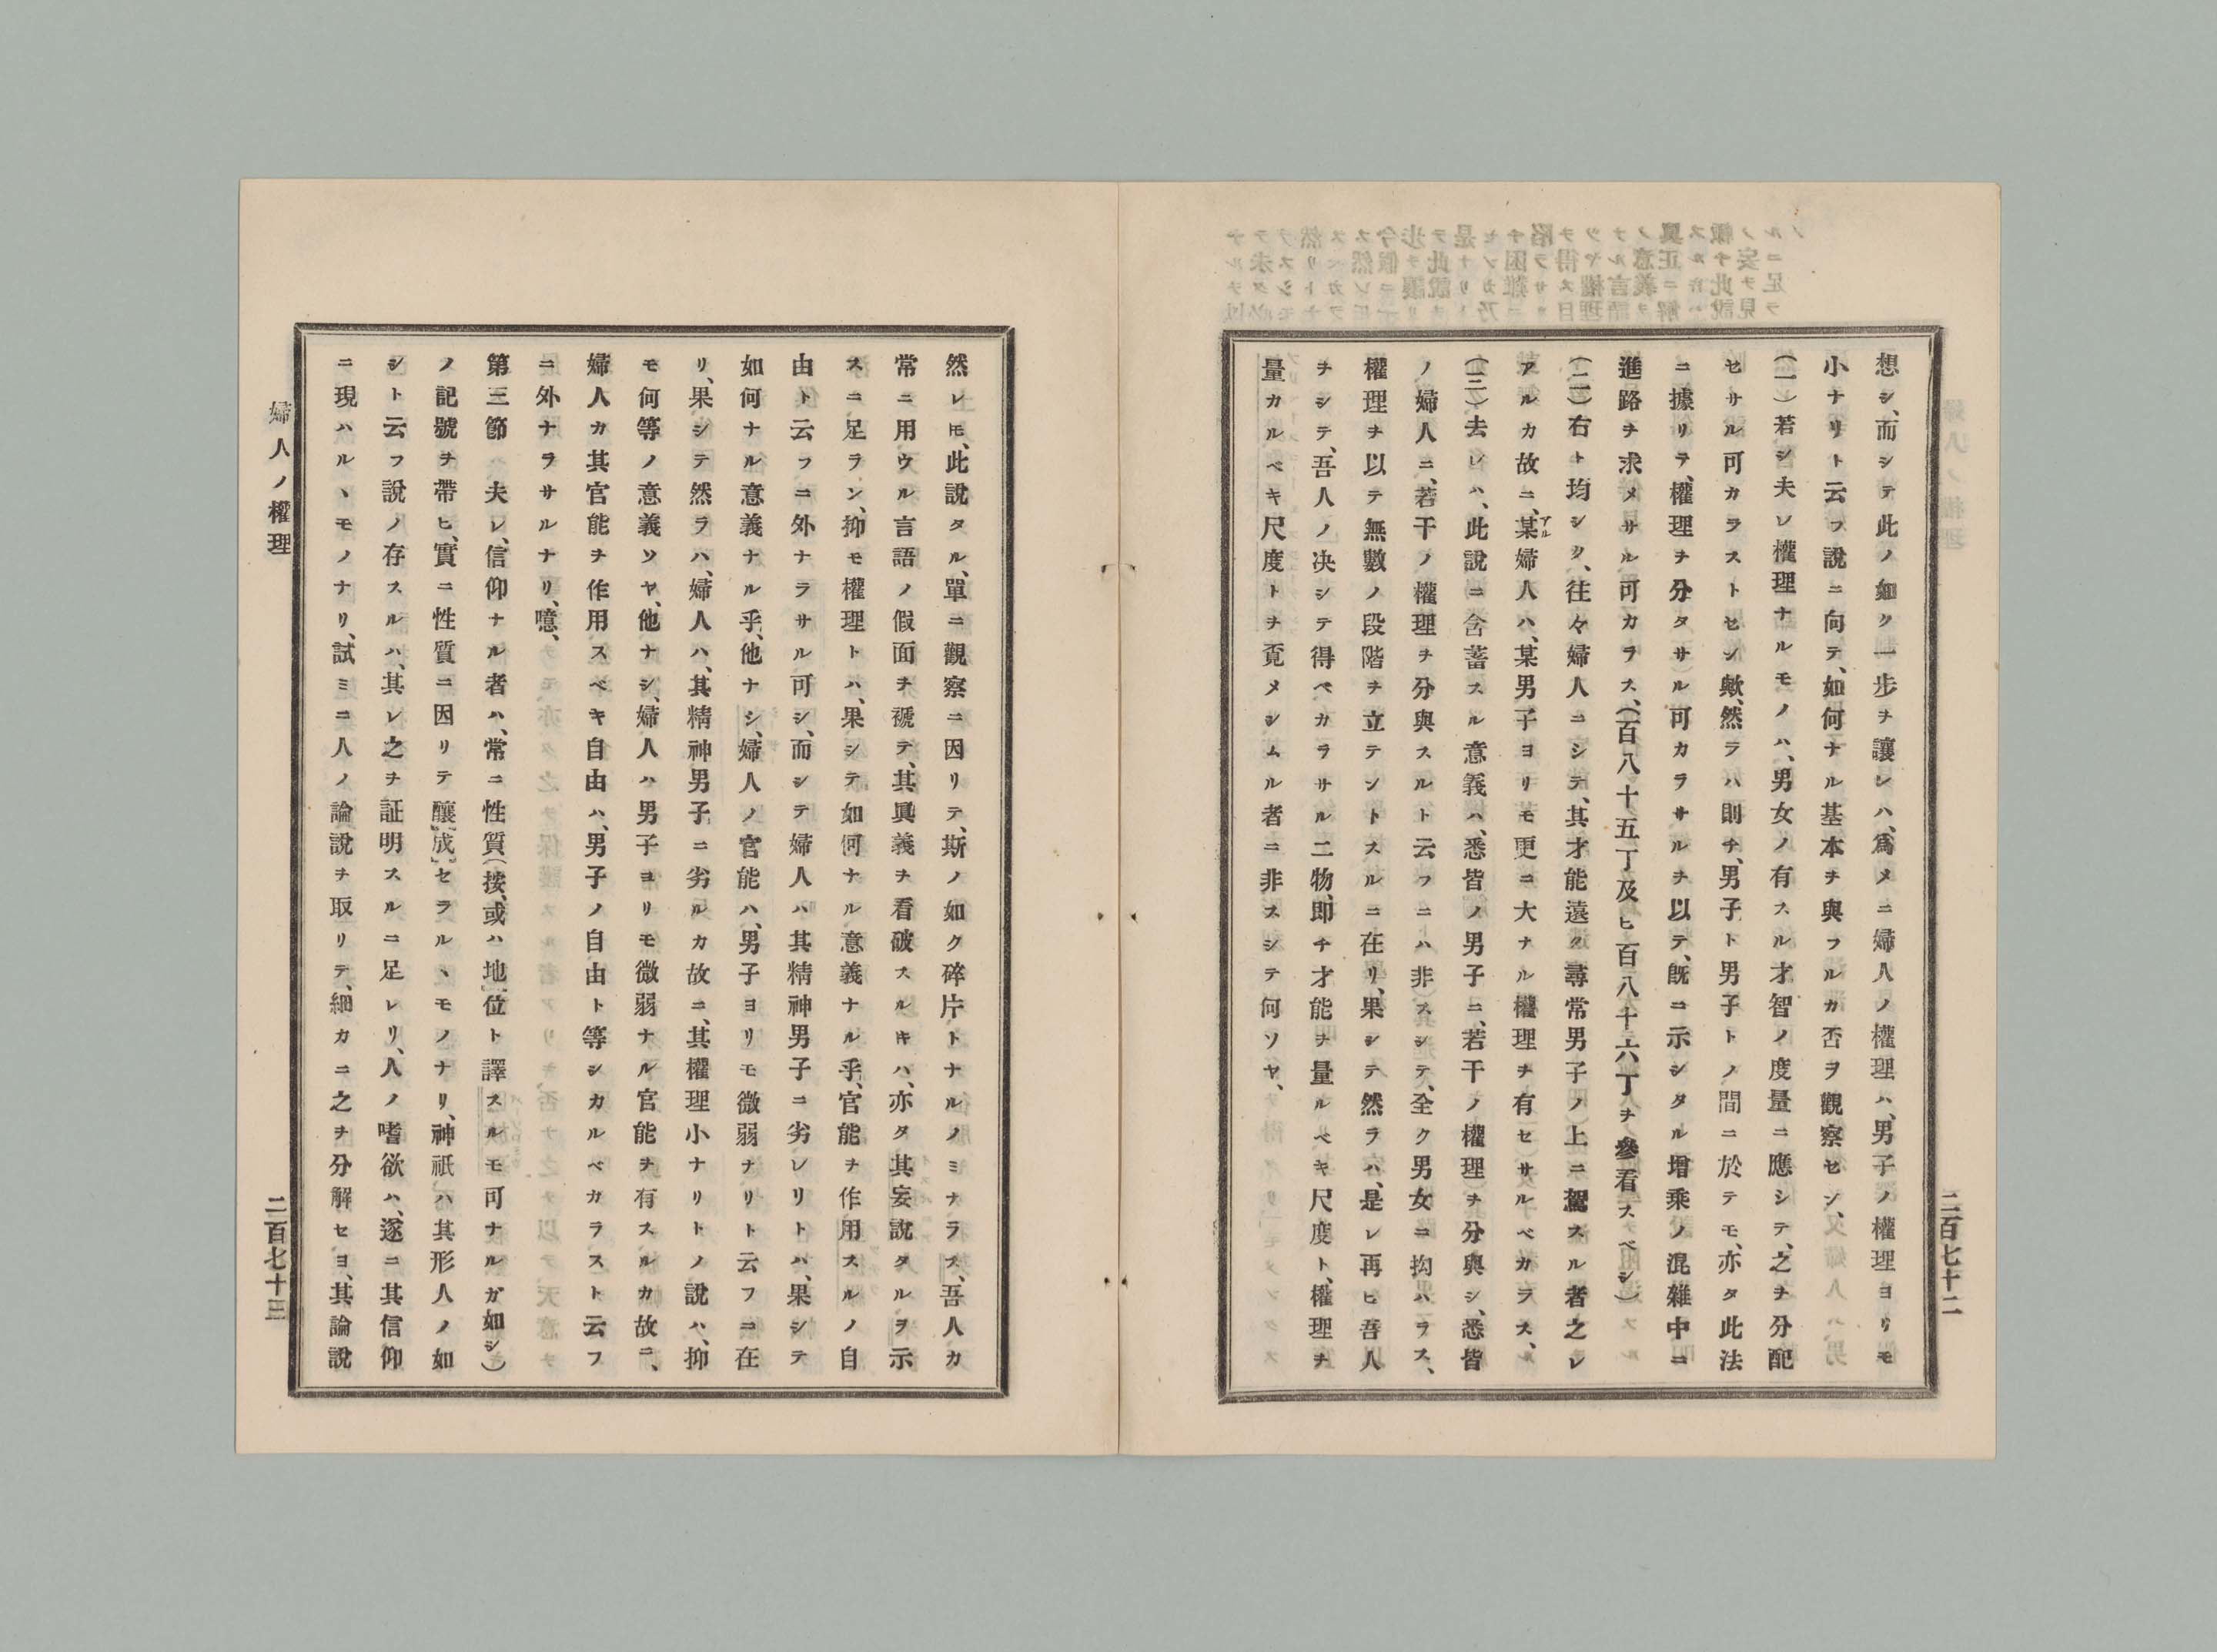 想シ、而シテ此ノ如ク一歩チ讓レハ、爲メニ婦人ノ權理ハ、男子ノ權理ヨリモ
小ナリト云フ說ニ向テ、如何ナル基本チ與フルカ否ヲ觀察セン、
(一)若シ夫レ權理ナルモノハ、男女ノ有スル才智ノ度量ニ應シテ、之チ分配
セサル可カラストセン歟、然ラハ則チ、男子ト男子トノ間ニ於テモ、亦タ此法
ニ據リテ、權理チ分タサル可カラサルチ以テ、既ニ示シタル增乘ノ混雜中ニ
進路チ求メサル可カラス、(百八十五丁及ヒ百八十六丁チ參看スベシ)
(二)右ト均シク、往々婦人ニシテ、其才能遠ク尋常男子ノ上ニ駕スル者之レ
アルカ故ニ、某婦人ハ、某男子ヨリモ更ニ大ナル權理チ有セサルベカラス、
アル
(三)去レハ、此說ニ含蓄スル意義ハ、悉皆ノ男子ニ、若干ノ權理チ分與シ、悉皆
ノ婦人ニ、若干ノ權理チ分與スルト云フニハ非スシテ、全ク男女ニ拘ハラス、
權理チ以テ無數ノ段階チ立テントスルニ在リ、果シテ然ラハ、是レ再ヒ吾人
チシテ、吾人ノ决シテ得ベカラサル二物、即チ才能チ量ルベキ尺度ト、權理チ
量カルベキ尺度トチ覔メシムル者ニ非スシテ何ソヤ、
二百七十二
然レ𪜈、此說タル、單ニ觀察ニ因リテ、斯ノ如ク碎片トナルノミナラス、吾人カ
常ニ用ウル言語ノ假面チ褫テ、其眞義チ看破スルキハ、亦タ其妄說タルヲ示
スニ足ラン、抑モ權理トハ、果シテ如何ナル意義ナル乎、官能チ作用スルノ自
由ト云フニ外ナラサル可シ、而シテ婦人ハ其精神男子ニ劣レリトハ、果シテ
如何ナル意義ナル乎、他ナシ、婦人ノ官能ハ、男子ヨリモ微弱ナリト云フニ在
リ、果シテ然ラハ、婦人ハ、其精神男子ニ劣ルカ故ニ、其權理小ナリトノ說ハ、抑
モ何等ノ意義ソヤ、他ナシ、婦人ハ男子ヨリモ微弱ナル官能チ有スルカ故ニ、
婦人カ其官能チ作用スベキ自由ハ、男子ノ自由ト等シカルベカラスト云フ
ニ外ナラサルナリ、噫、
第三節 夫レ信仰ナル者ハ、常ニ性質(按、或ハ地位ト譯スルモ可ナルガ如シ)
ノ記號チ帶ヒ、實ニ性質ニ因リテ釀成セラルヽモノナリ、神祇ハ其形人ノ如
シト云フ說ノ存スルハ、其レ之チ証明スルニ足レリ、人ノ嗜欲ハ、遂ニ其信仰
ニ現ハルヽモノナリ、試ミニ人ノ論說チ取リテ、細カニ之チ分解セヨ、其論說
婦人ノ權理
二百七十三